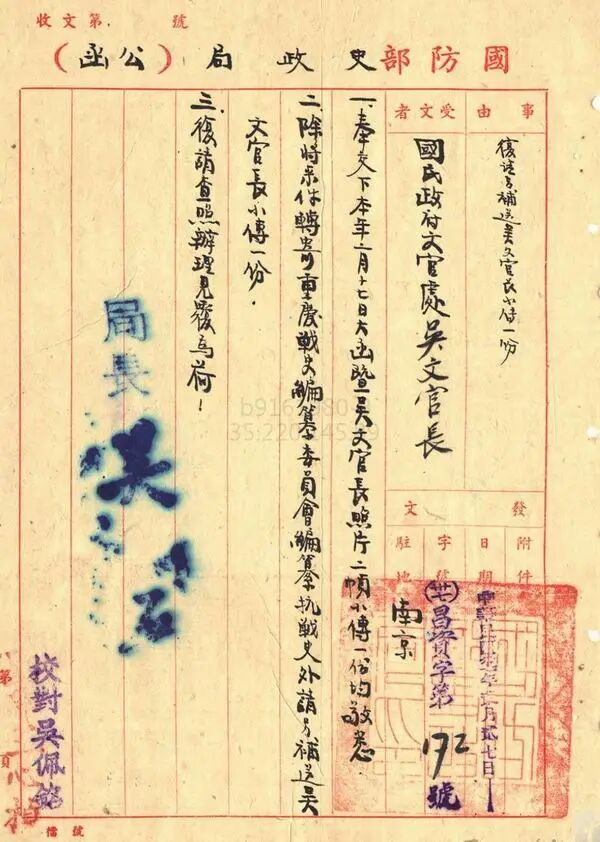 收文第 號
國防部史政局(公函)
事由
復請另補送吳文官長小傳一份
受文者
國民政府文官處吳文官長
發文
附件
日期
中華民國卅七年 月貳七日
字號
(卅七)昌資字第172號
駐地
南京
一、奉交下本年一月十七日大函暨吳文官長照片二幀小傳一份均敬悉
二、除將來件轉寄重慶戰史編纂委員會編纂抗戰史外請另補送吳
文官長小傳一份.
三、復請查照辦理見覆為荷!
局長
吳石
校對吳佩
第
頁
檔號